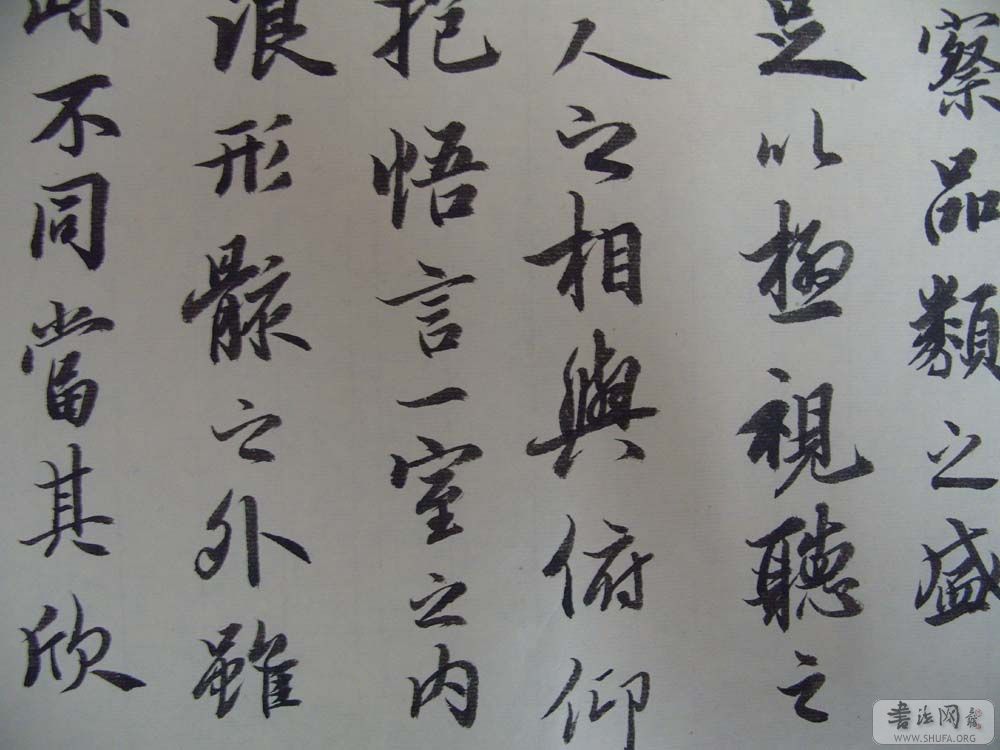 察品類之盛
足以極視聽之
人之相與俯仰
抱悟言一室之内
浪形骸之外雖
不同當其欣
書法网
WWW.SHUFA.ORG